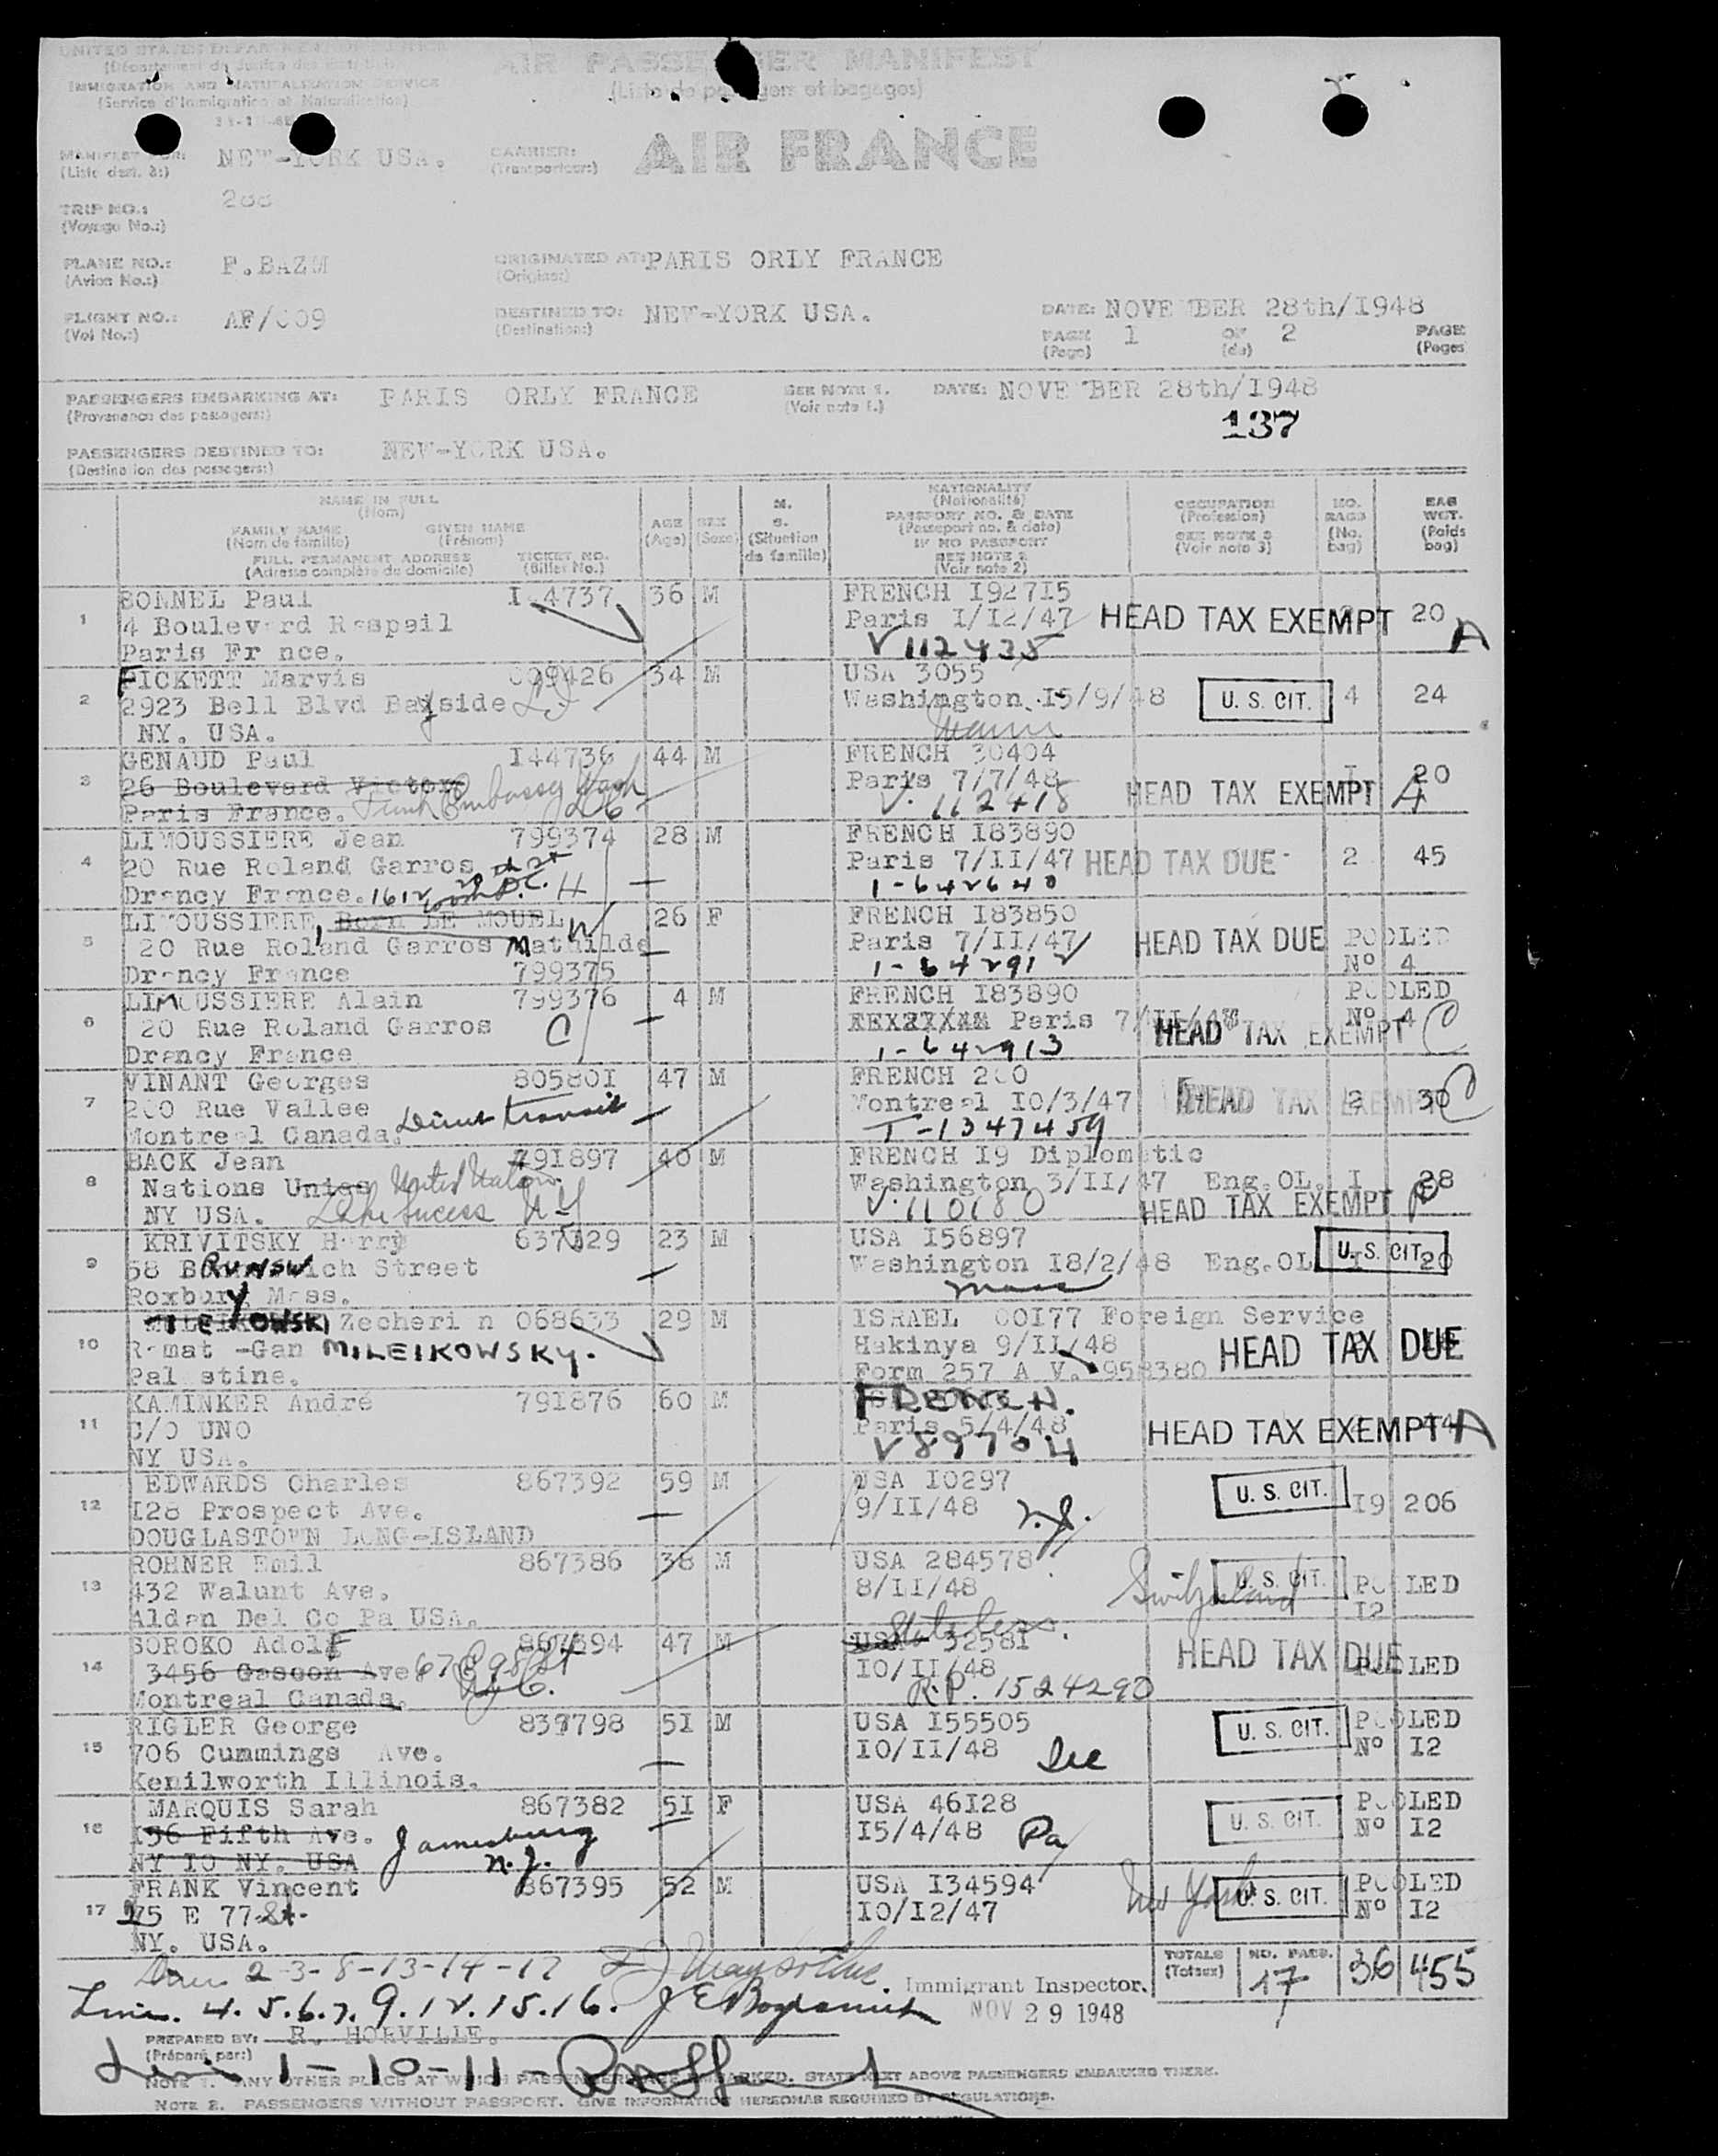 UNITED STATES DEPARTMENT OF JUSTICE
(Département de Justice des Etats-Unis)
IMMIGRATION AND NATURALIZATION SERVICE
(Service d'Immigration et Naturalisation)
AIR PASSENGER MANIFEST
(Liste de passagers et bagages)
MANIFEST FOR: NEW-YORK USA.
(Liste dest. à:)
CARRIER: AIR FRANCE
(Transporteur:)
TRIP NO.:
(Voyage No.:)
PLANE NO.: F.BAZM
(Avion No.:)
ORIGINATED AT: PARIS ORLY FRANCE
(Origine:)
FLIGHT NO.: AF/009
(Vol No.:)
DESTINED TO: NEW-YORK USA.
(Destination:)
DATE: NOVEMBER 28th/1948
PAGE 1 OF 2 PAGE
(Page) (de) (Pages
PASSENGERS EMBARKING AT: PARIS ORLY FRANCE
(Provenance des passagers:)
SEE NOTE 1.
(Voir note 1.)
DATE: NOVEMBER 28th/1948
137
PASSENGERS DESTINED TO: NEW-YORK USA.
(Destination des passagers:)
NAME IN FULL
(Nom)
FAMILY NAME GIVEN NAME
(Nom de famille) (Prénom)
FULL PERMANENT ADDRESS TICKET NO.
(Adresse complète du domicile) (Billet No.)
AGE
(Age)
SEX
(Sexe)
M.
S.
(Situation
de famille)
NATIONALITY
(Nationalité)
PASSPORT NO. & DATE
(Passeport no. & date)
IF NO PASSPORT
SEE NOTE 2
(Voir note 2)
OCCUPATION
(Profession)
SEE NOTE 3
(Voir note 3)
NO.
BAGS
(No.
bag)
BAG
WGT.
(Poids
bag)
1 BONNEL Paul I44737 36 M FRENCH I92715
4 Boulevard Raspail Paris I/I2/47 HEAD TAX EXEMPT 20 A
Paris France. V 112435
2 PICKETT Marvis 009426 34 M USA 3055
2923 Bell Blvd Bayside LI Washington I5/9/48 U. S. CIT. 4 24
NY. USA.
3 GENAUD Paul I44736 44 M FRENCH 30404
26 Boulevard Victor Paris 7/7/48 I 20
Paris France. French Embassy Wash DC V. 112418 HEAD TAX EXEMPT A
4 LIMOUSSIERE Jean 799374 28 M FRENCH I83890
20 Rue Roland Garros Paris 7/II/47 HEAD TAX DUE 2 45
Drancy France. 1612 20th St Wash D.C. H 1-642640
5 LIMOUSSIERE, Born LE MOUEL W 26 F FRENCH I83850
20 Rue Roland Garros Mathilde Paris 7/II/47 HEAD TAX DUE POOLED
Drancy France 799375 1-64291 Nº 4
6 LIMOUSSIERE Alain 799376 4 M FRENCH I83890 POOLED
20 Rue Roland Garros C Paris 7/II/47 Nº 4
Drancy France 1-642913 HEAD TAX EXEMPT C
7 VINANT Georges 805801 47 M FRENCH 200
200 Rue Vallee Montreal IO/3/47 HEAD TAX EXEMPT 2 30 C
Montreal Canada. Direct transit T-1347459
8 BACK Jean 791897 40 M FRENCH I9 Diplomatic
Nations Unies United Nations Washington 3/II/47 Eng.OL. I 28
NY USA. Lake Sucess NY V. 110180 HEAD TAX EXEMPT
9 KRIVITSKY Harry 637129 23 M USA I56897
58 Brunswich Street Washington I8/2/48 Eng.OL U. S. CIT. 20
Roxbury Mass. Mass
10 Zecheri n 068633 29 M ISRAEL 00I77 Foreign Service
Ramat -Gan MILEIKOWSKY. Hakinya 9/II/48 HEAD TAX DUE
Palestine. Form 257 A V. 958380
11 KAMINKER André 791876 60 M FRENCH.
C/O UNO Paris 5/4/48 HEAD TAX EXEMPT 44 A
NY USA. V 89704
12 EDWARDS Charles 867392 59 M USA I0297
128 Prospect Ave. 9/II/48 N.J. U. S. CIT. I9 206
DOUGLASTOWN LONG-ISLAND
13 ROHNER Emil 867386 38 M USA 284578
432 Walunt Ave. 8/II/48 Switzerland U. S. CIT. POOLED
Aldan Del Co Pa USA. I2
14 SOROKO Adolf 867394 47 M USA 32581 Stateless.
3456 Gascon Ave 67 E 98 St IO/II/48 HEAD TAX DUE POOLED
Montreal Canada. R.P. 1524290
15 RIGLER George 837798 5I M USA I55505 U. S. CIT. POOLED
706 Cummings Ave. IO/II/48 Nº I2
Kenilworth Illinois.
16 MARQUIS Sarah 867382 5I F USA 46I28 POOLED
156 Fifth Ave. I5/4/48 Pa U. S. CIT. Nº I2
NY IO NY. USA Jamesburg N.J.
17 FRANK Vincent 867395 52 M USA I34594 New York U. S. CIT. POOLED
75 E 77 St. IO/I2/47 Nº I2
NY. USA.
2-3-8-13-14-17
Immigrant Inspector.
TOTALS
(Totaux)
NO. PASS.
17 36 455
4. 5. 6. 7. 9. 12. 15. 16.
NOV 29 1948
PREPARED BY: R. HORVILLE.
(Préparé par:)
1-10-11-
NOTE 1. ANY OTHER PLACE AT WHICH PASSENGERS ARE EMBARKED. STATE NEXT ABOVE PASSENGERS EMBARKED THERE.
NOTE 2. PASSENGERS WITHOUT PASSPORT. GIVE INFORMATION HEREON AS REQUIRED BY REGULATIONS.